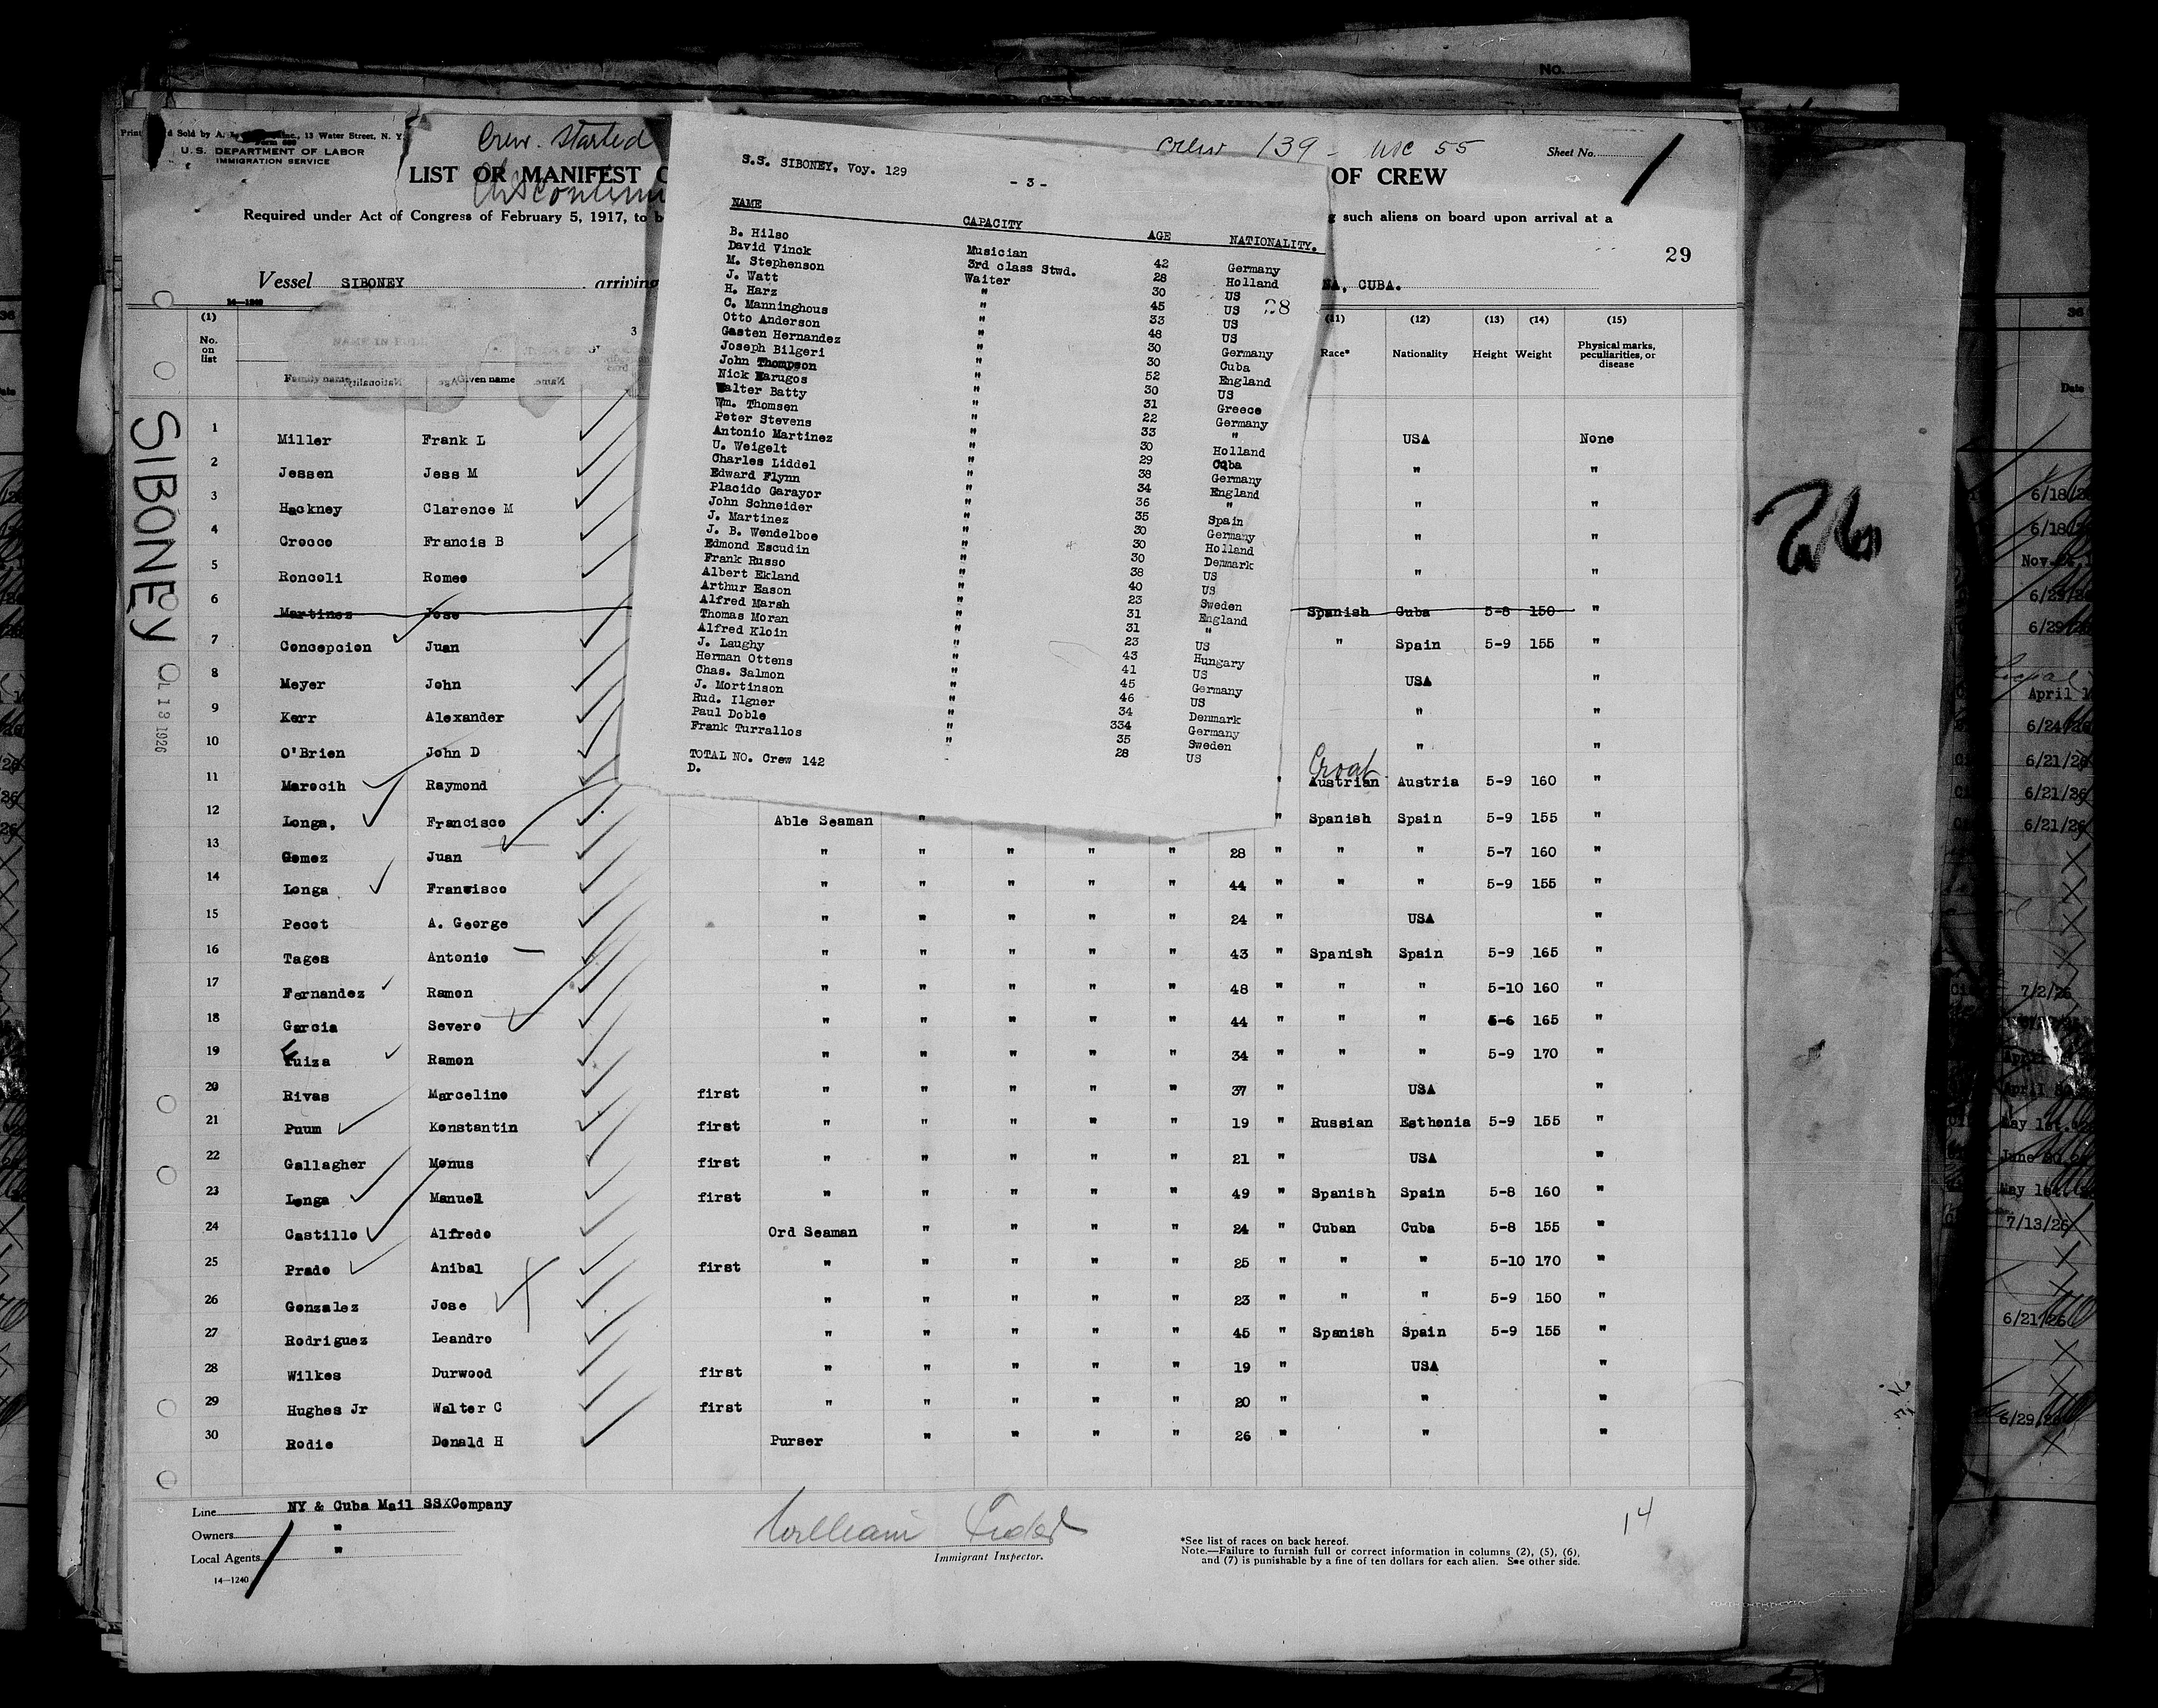 No.
Crew. Started
Crew 139 - USC 55
Sheet No. 1
13 Water Street, N. Y.
U.S. DEPARTMENT OF LABOR
IMMIGRATION SERVICE
LIST OR MANIFEST O
OF CREW
Required under Act of Congress of February 5, 1917, to b
such aliens on board upon arrival at a
29
Vessel SIBONEY arriving
NA, CUBA.
14—1240
S.S. SIBONEY, Voy. 129
- 3 -
NAME CAPACITY AGE NATIONALITY.
B. Hilso Musician 42 Germany
David Vinck 3rd class Stwd. 28 Holland
M. Stephenson Waiter 30 US
J. Watt " 45 US 28
H. Harz " 33 US
C. Manninghous " 48 US
Otto Anderson " 30 Germany
Gasten Hernandez " 30 Cuba
Joseph Bilgeri " 52 England
John Thompson " 30 US
Nick Marugos " 31 Greece
Walter Batty " 22 Germany
Wm. Thomsen " 33 "
Peter Stevens " 30 Holland
Antonio Martinez " 29 Cuba
U. Weigelt " 38 Germany
Charles Liddel " 34 England
Edward Flynn " 36 "
Placido Garayor " 35 Spain
John Schneider " 30 Germany
J. Martinez " 30 Holland
J. B. Wendelboe " 30 Denmark
Edmond Escudin " 38 US
Frank Russo " 40 US
Albert Ekland " 23 Sweden
Arthur Eason " 31 England
Alfred Marsh " 31 "
Thomas Moran " 23 US
Alfred Kloin " 43 Hungary
J. Laughy " 41 US
Herman Ottens " 45 Germany
Chas. Salmon " 46 US
J. Mortinson " 34 Denmark
Rud. Ilgner " 334 Germany
Paul Doble " 35 Sweden
Frank Turrallos " 28 US
TOTAL NO. Crew 142
D.
(1) 3 (11) (12) (13) (14) (15)
No. on list Family name Given name Race* Nationality Height Weight Physical marks, peculiarities, or disease
1 Miller Frank L USA None
2 Jessen Jess M " "
3 Hackney Clarence M " "
4 Crocco Francis B " "
5 Roncoli Romeo " "
6 Martinez Jose Spanish Cuba 5-8 150 "
7 Concepcion Juan " Spain 5-9 155 "
8 Meyer John USA "
9 Kerr Alexander " "
10 O'Brien John D " "
Croat
11 Marocih Raymond " Austrian Austria 5-9 160 "
12 Longa, Francisco Able Seaman " " Spanish Spain 5-9 155 "
13 Gomez Juan " " " " " 28 " " " 5-7 160 "
14 Longa Francisco " " " " " 44 " " " 5-9 155 "
15 Pecot A. George " " " " " 24 " USA "
16 Tages Antonio " " " " " 43 " Spanish Spain 5-9 165 "
17 Fernandez Ramon " " " " " 48 " " " 5-10 160 "
18 Garcia Severo " " " " " 44 " " " 5-6 165 "
19 Luiza Ramon " " " " " 34 " " " 5-9 170 "
20 Rivas Marcelino first " " " " " 37 " USA "
21 Puum Konstantin first " " " " " 19 " Russian Esthonia 5-9 155 "
22 Gallagher Monus first " " " " " 21 " USA "
23 Longa Manuel first " " " " " 49 " Spanish Spain 5-8 160 "
24 Castillo Alfredo Ord Seaman " " " " 24 " Cuban Cuba 5-8 155 "
25 Prado Anibal first " " " " " 25 " " " 5-10 170 "
26 Gonzalez Jose " " " " " 23 " " " 5-9 150 "
27 Rodriguez Leandro " " " " " 45 " Spanish Spain 5-9 155 "
28 Wilkes Durwood first " " " " " 19 " USA "
29 Hughes Jr Walter C first " " " " " 20 " " "
30 Rodie Donald H Purser " " " " 26 " " "
SIBONEY
13 1926
Line NY & Cuba Mail SSXCompany
Owners "
Local Agents "
14—1240
William
Immigrant Inspector.
*See list of races on back hereof.
Note.—Failure to furnish full or correct information in columns (2), (5), (6),
and (7) is punishable by a fine of ten dollars for each alien. See other side.
14
36
Date
6/18/2
6/18/
Nov.
6/29/26
6/29/26
April 1
6/24/26
6/21/26
6/21/26
6/21/26
7/2/26
May 1st.
June 30,
May 1st.
7/13/26
6/21/26
6/29/26